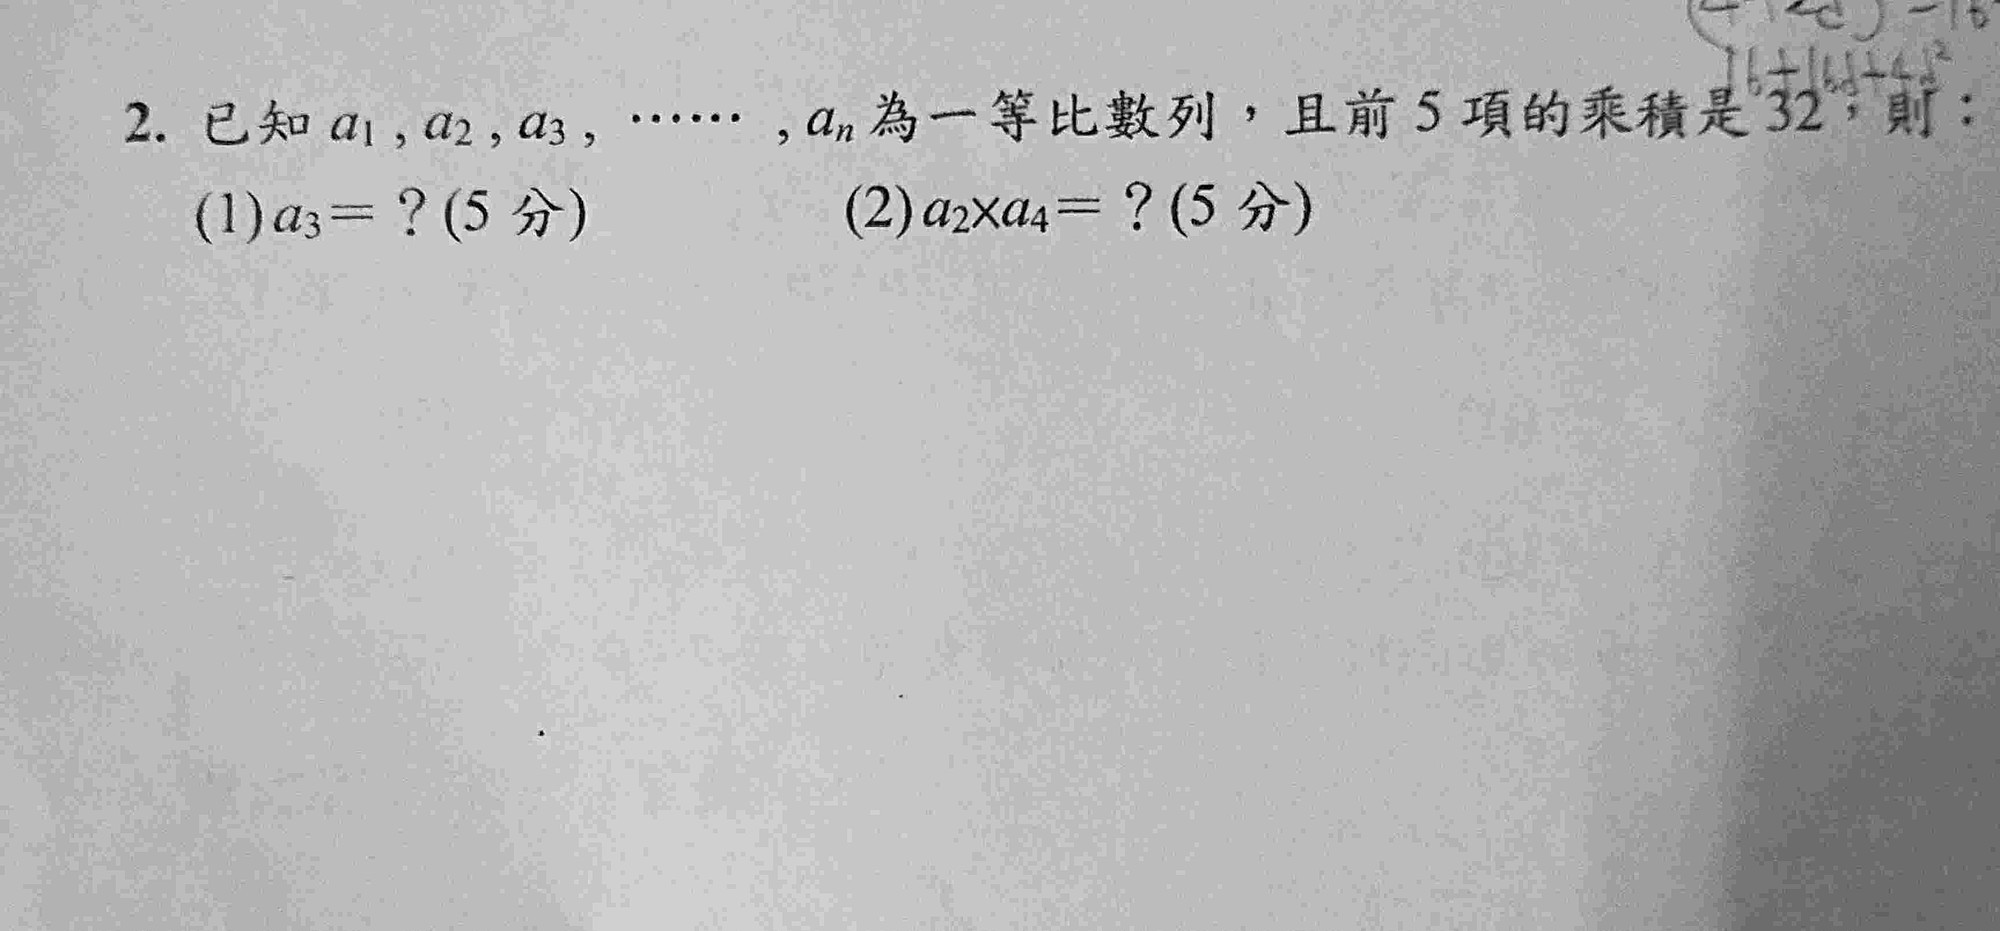 16+16d+4d²
2. 已知 a₁ , a₂ , a₃ , …… , aₙ 為一等比數列，且前 5 項的乘積是 32，則：
(1)a₃＝？(5 分) (2)a₂×a₄＝？(5 分)